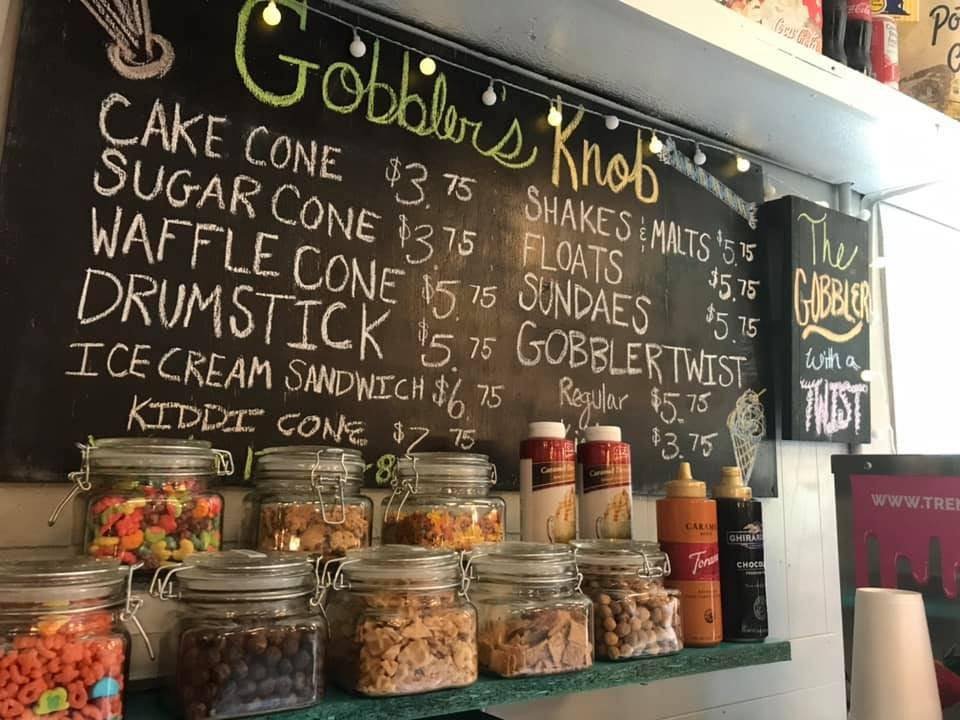 Gobblers Knob
CAKE CONE $3.75
SUGAR CONE $3.75
WAFFLE CONE $5.75
DRUMSTICK $5.75
ICE CREAM SANDWICH $6.75
KIDDI CONE $2.75
SHAKES & MALTS $5.75
FLOATS $5.75
SUNDAES $5.75
GOBBLER TWIST
Regular $5.75
$3.75
The
GOBBLER
with a
TWIST
WWW.TREN
CARAM
Torani
GHIRAR
CHOCO
Caramel
Caramel
Coca-Cola
Po